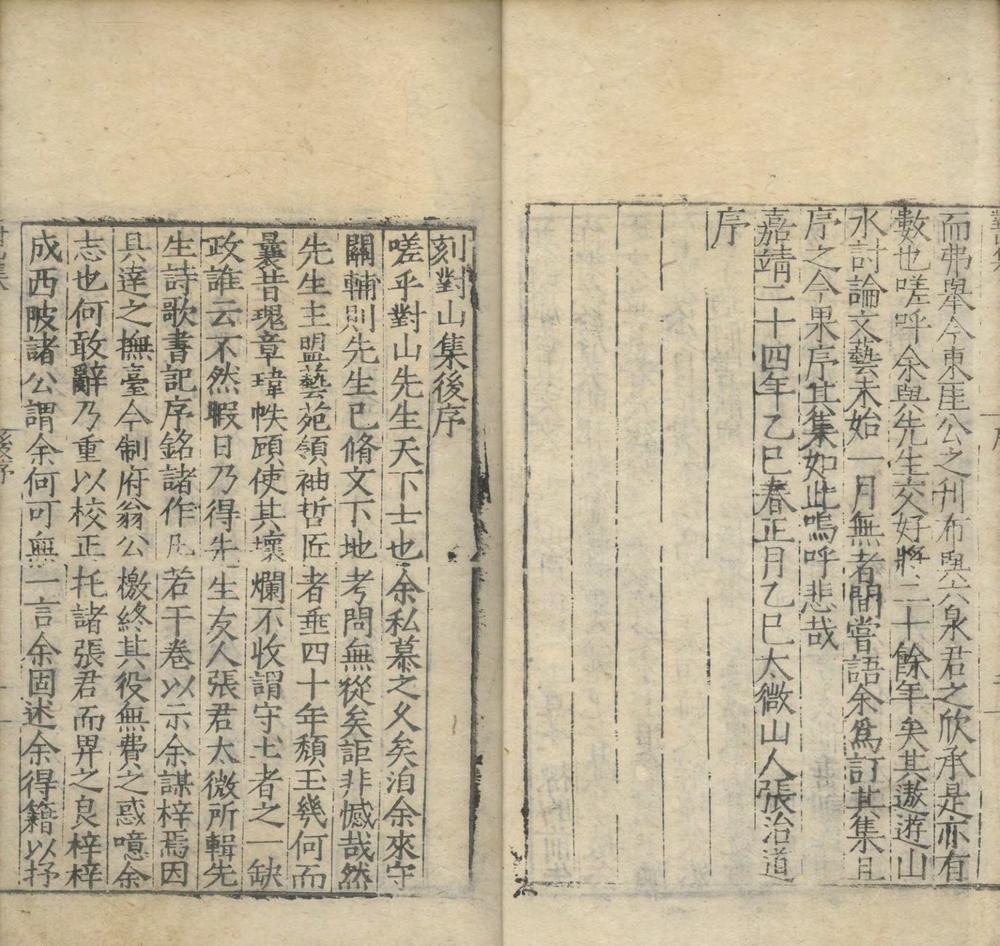 而弗舉今東厓公之刋布與六泉君之欣承是亦有
數也嗟呼余與先生交好將三十餘年矣其遨遊山
水討論文藝未始一月無者間嘗語余爲訂其集且
序之今果序其集如此嗚呼悲哉
嘉靖二十四年乙巳春正月乙巳太微山人張治道
序
刻對山集後序
嗟乎對山先生天下士也余私慕之久矣洎余來守
關輔則先生已脩文下地考問無從矣詎非憾哉然
先生主盟藝苑領袖哲匠者垂四十年頽玉幾何而
曩昔瑰章瑋帙頋使其壞爛不收謂守土者之一缺
政誰云不然暇日乃得先生友人張君太微所輯先
生詩歌書記序銘諸作凡若干卷以示余謀梓焉因
具達之撫臺今制府翁公檄終其役無費之惑噫余
志也何敢辭乃重以校正托諸張君而畀之良梓梓
成西陂諸公謂余何可無一言余固述余得籍以抒
後序